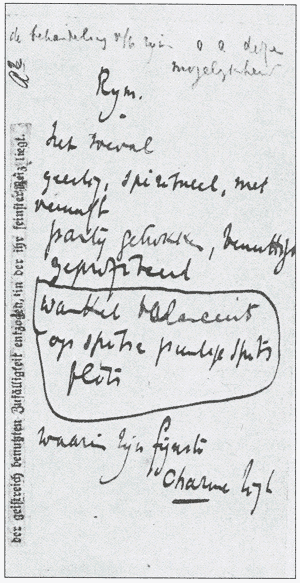 de behandeling v/h rijm o a deze
mogelijkheid
Rym.
het toeval
geestig, spiritueel, met
vernuft
party getrokken, benuttigd
geprofiteerd
wankel balanceert
op spitse puntige spits
plots
waarin zijn fijnste
Charme ligt
der geistreich benutzten Zufälligkeit entzogen, in der ihr feinster Reiz liegt.